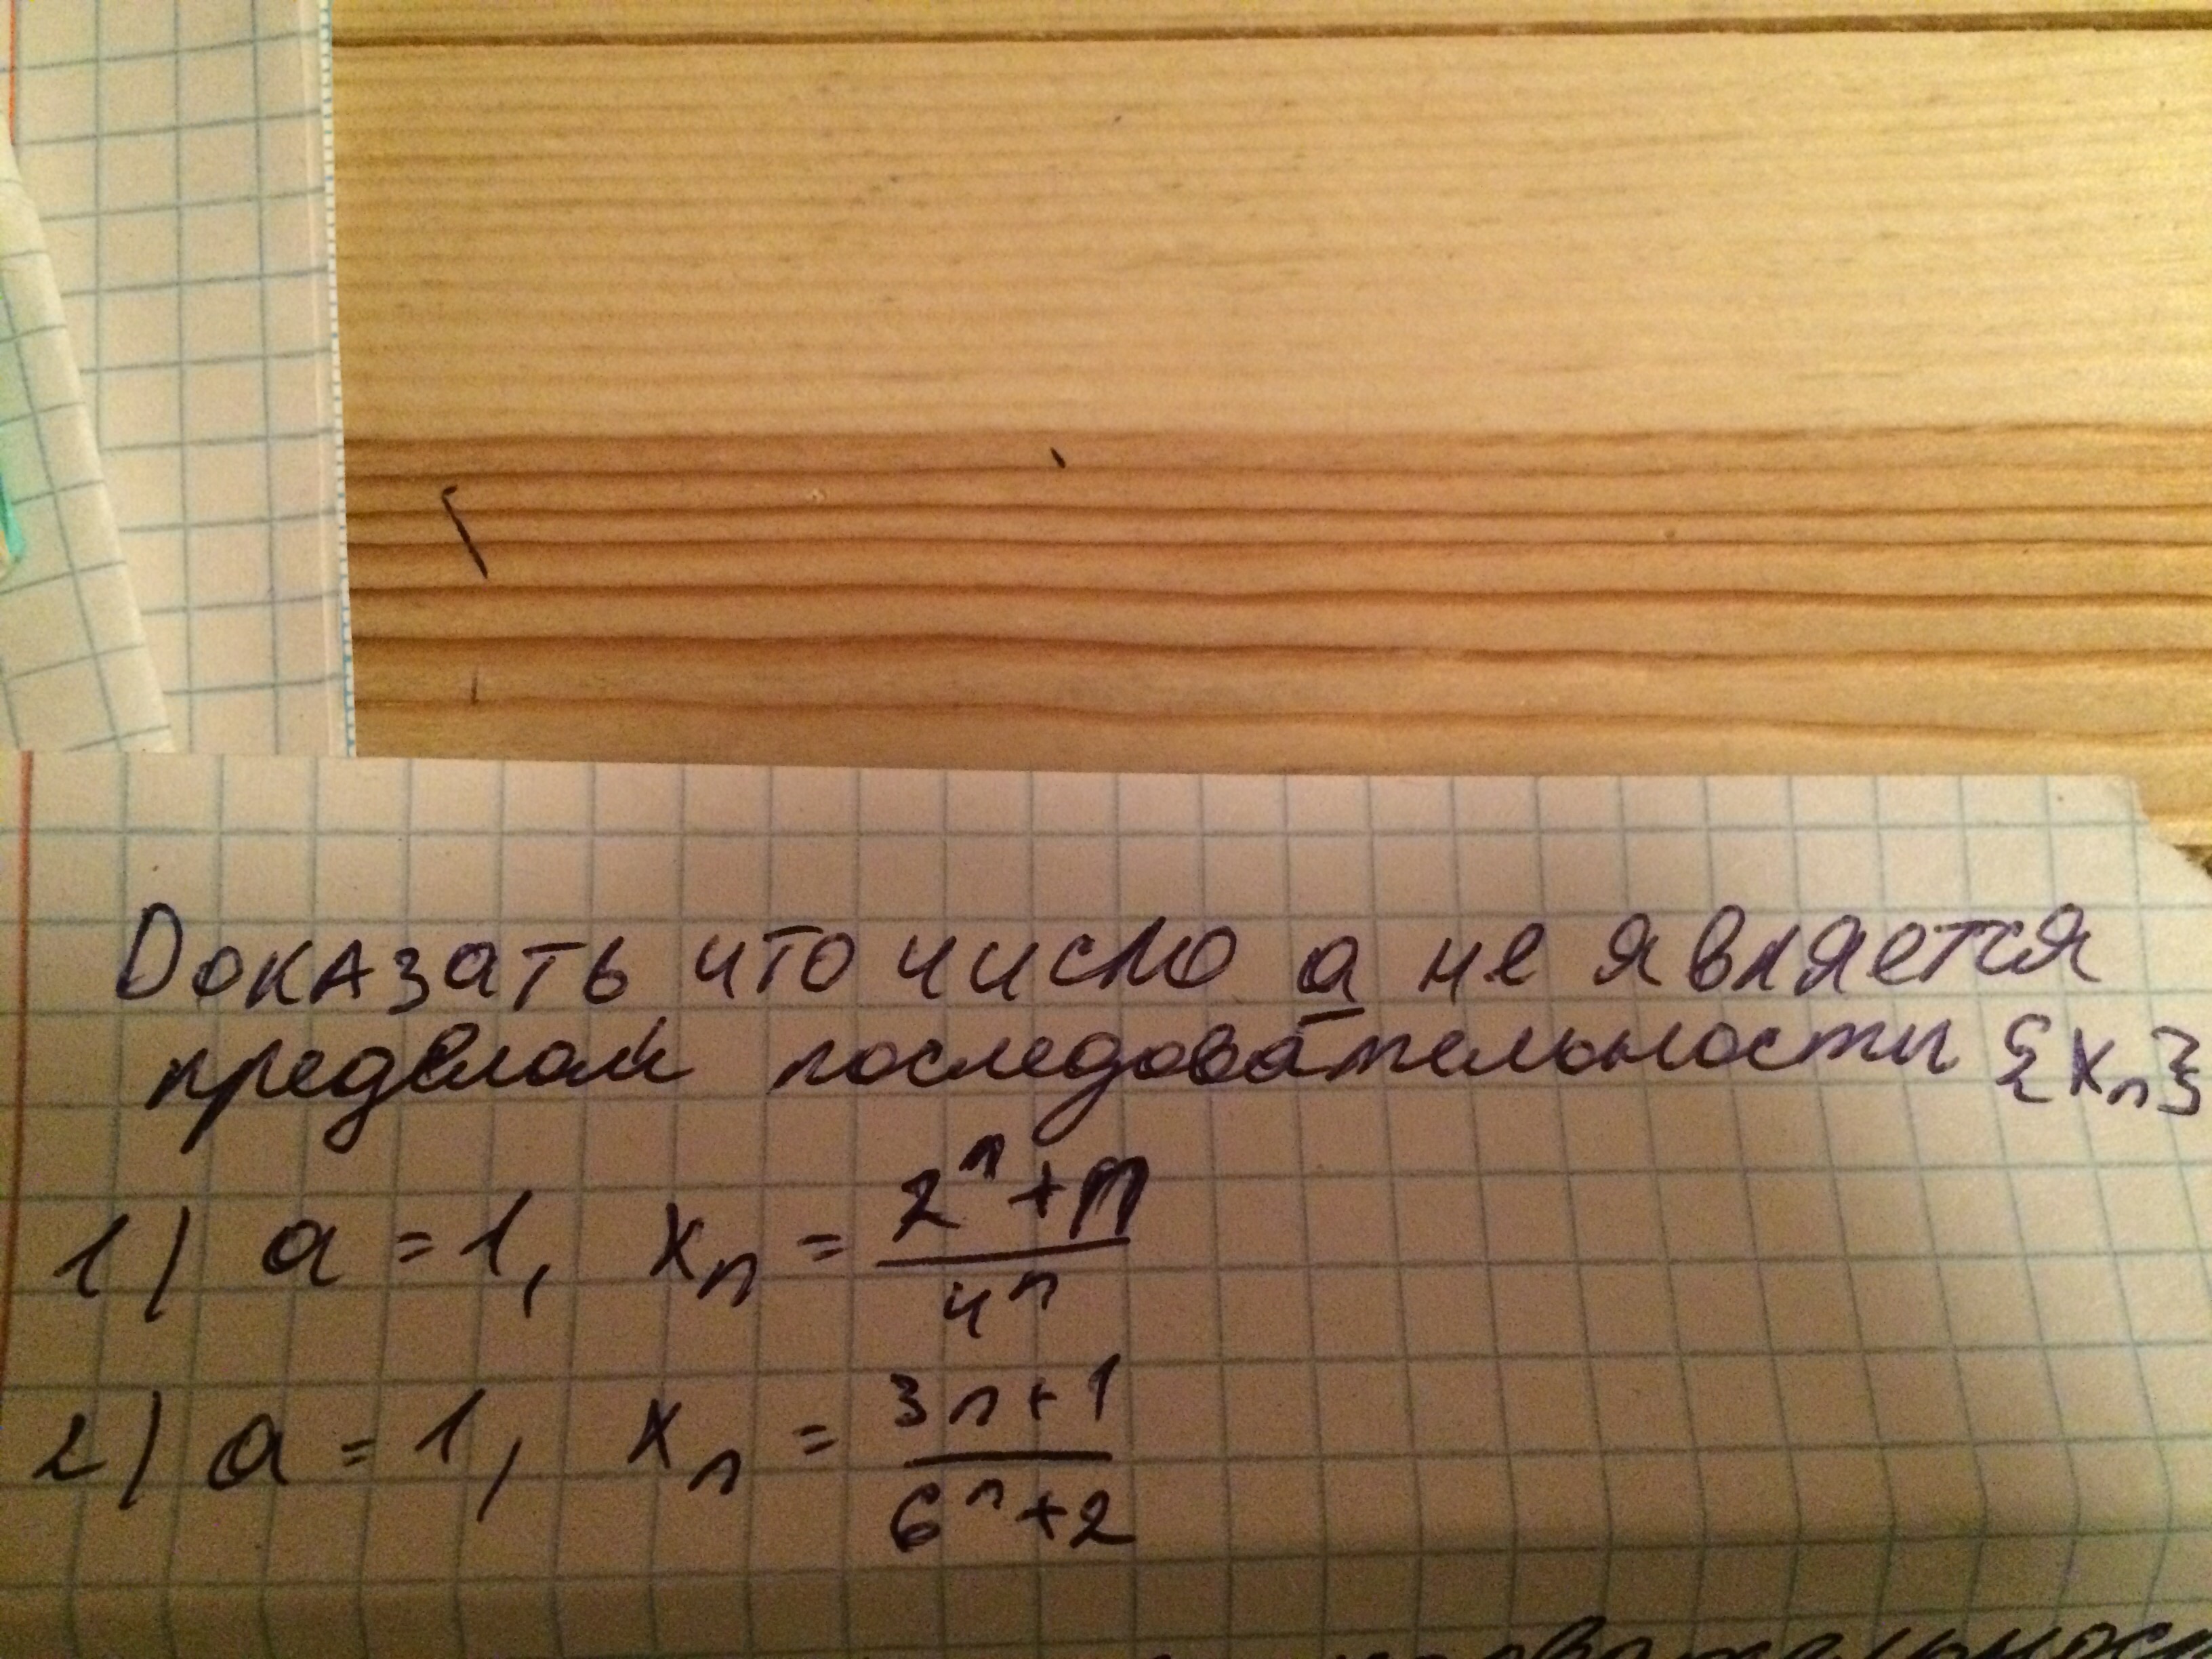 Доказать что число a не является
пределом последовательности {xₙ}
1) a = 1, xₙ = (2ⁿ + n) / 4ⁿ
2) a = 1, xₙ = (3n + 1) / (6ⁿ + 2)